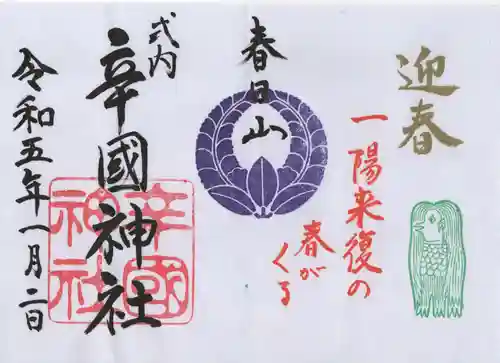 迎春
一陽来復の
春がくる
春日山
式内
辛國神社
辛國神社
令和五年一月二日